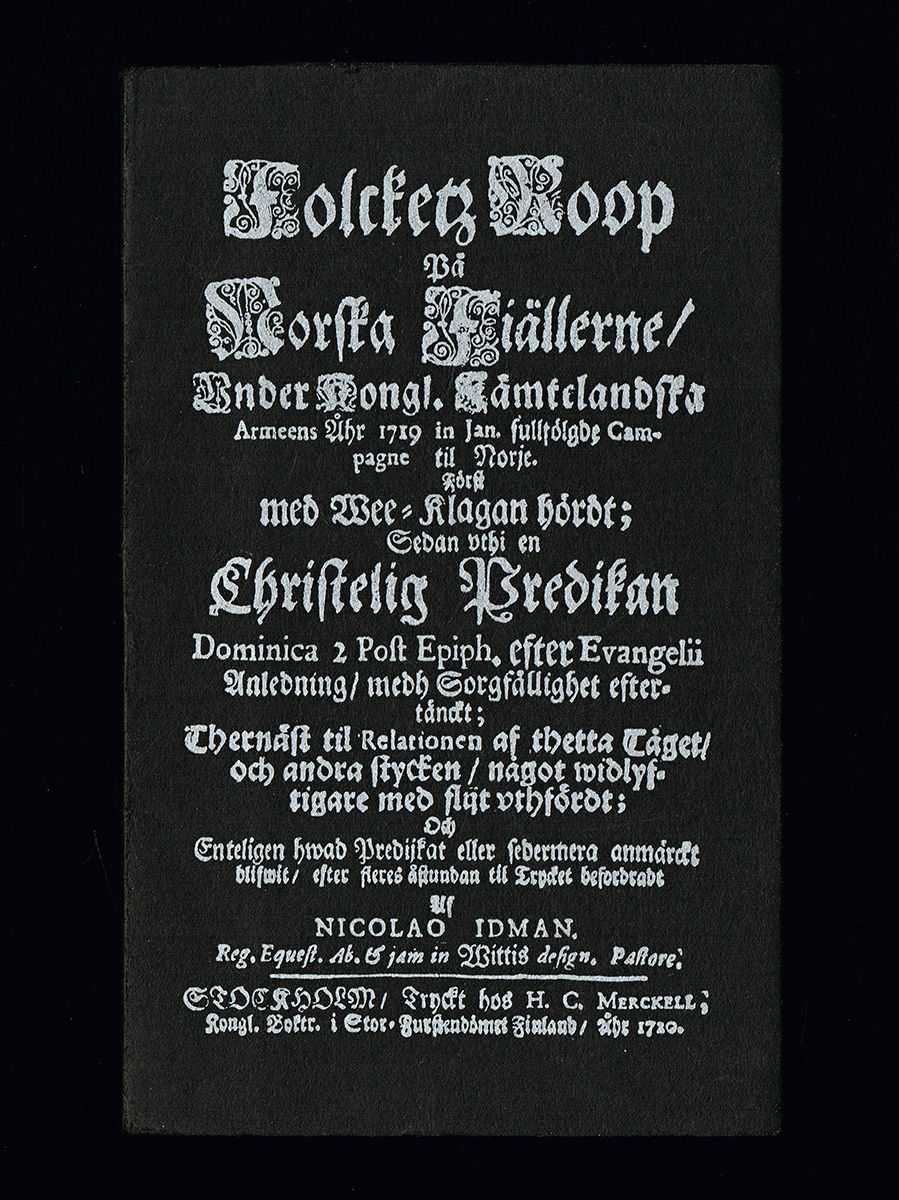 Folcketz Roop
På
Norska Fiällerne/
Vnder Kongl. Jämtelandska
Armeens Åhr 1719 in Jan. fullfölgde Cam-
pagne til Norje.
Först
med Wee-Klagan hördt;
Sedan vthi en
Christelig Predikan
Dominica 2 Post Epiph. efter Evangelii
Anledning/ medh Sorgfällighet efter-
tänckt;
Thernäst til Relationen af thetta Tåget/
och andra stycken/ något widlyf-
tigare med flijt vthfördt;
Och
Enteligen hwad Predijkat eller sedermera anmärckt
blifwit/ efter fleres åstundan til Trycket befordradt
Af
NICOLAO IDMAN.
Reg. Equest. Ab. & jam in Wittis design. Pastore.
STOCKHOLM/ Tryckt hos H. C. MERCKELL;
Kongl. Boktr. i Stor-Furstendömet Finland/ Åhr 1720.